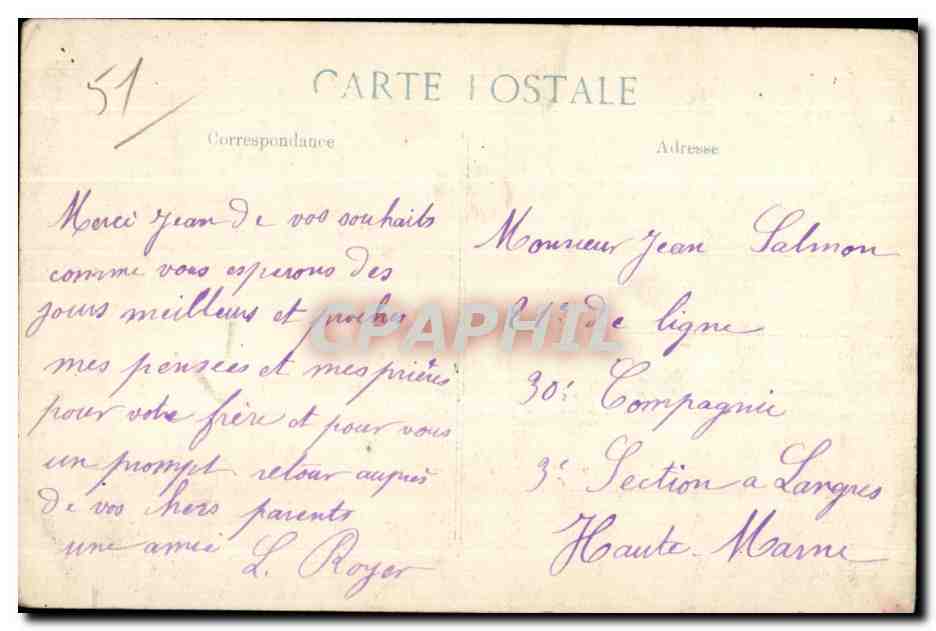 51
CARTE POSTALE
Correspondance
Adresse
Merci Jean de vos souhaits
comme vous esperons des
jours meilleurs et proches
mes pensées et mes prières
pour votre frère et pour vous
un prompt retour auprès
de vos chers parents
une amie L. Royer
Monsieur Jean Salmon
21e de ligne
30e Compagnie
3e Section a Langres
Haute-Marne
CPAPHIL